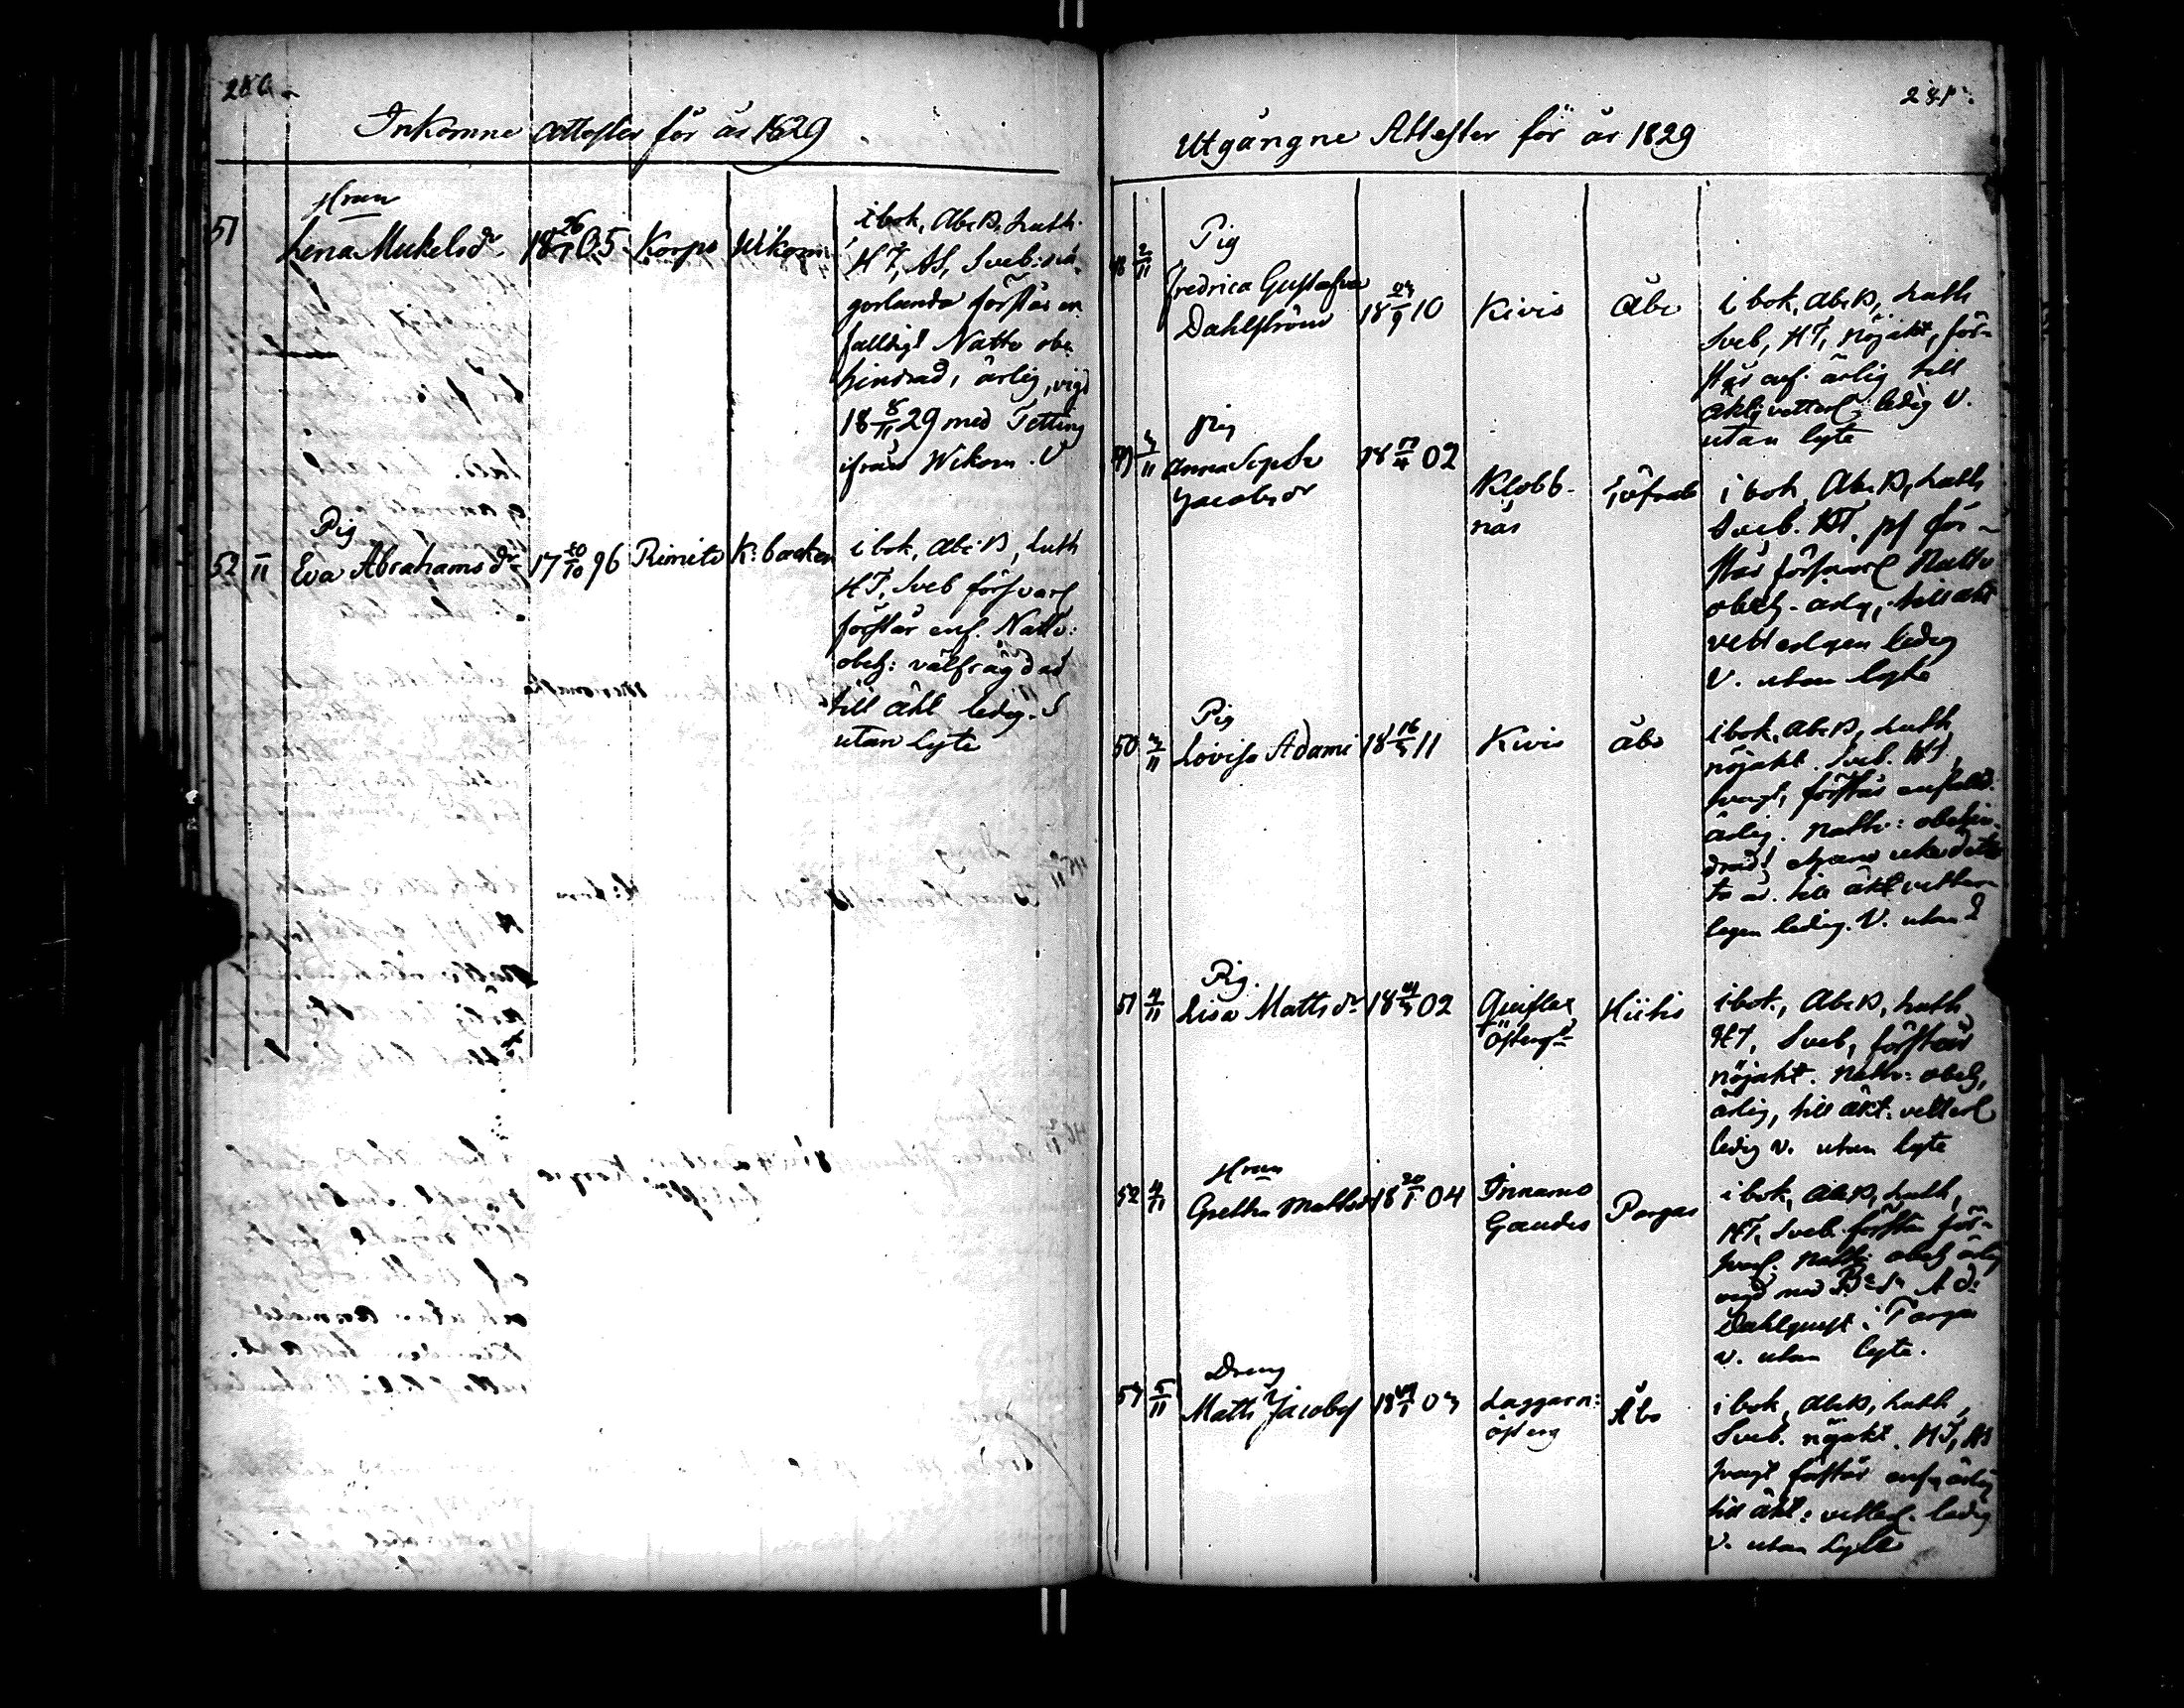 280
Inkomne Attester för år 1829
51
Hrun
Lena Mickelsdr
18 26/1 05
Korpo
Wikom
i bok, Abc B, Luth.
HT, AS, Sveb: nå-
gorlunda förstår en-
falldigt Nattv obe-
hindrad, ärlig, vigd
18 8/11 29 med Tetting
ifrån Wikom. V
52
11
Pig
Eva Abrahamsdr
17 20/10 96
Rimito
K: backen
i bok, Abc B, Luth
HT, Sveb försvarl
förstår enf. Nattv:
obeh: välfrägdad
till äkt ledig. S
utan lyte
281
Utgångne Attester för år 1829
48 2/11
Pig
Fredrica Gustafva
Dahlström
18 23/9 10
Kivis
Åbo
i bok, Abc B, Luth
Sveb, HT, nöjakt, för-
står enf. ärlig till
äkt, vetterl: ledig V.
utan lyte
49 3/11
Pig
Anna Sophi
Jacobsdr
18 17/4 02
Klobb-
näs
i bok, Abc B, Luth
Sveb. HT, för-
står försvarl Nattv
obeh. ärlig, till äkt
vetterligen ledig
V. utan lyte
50 3/11
Pig
Lovisa Adami
18 16/3 11
Kivis
Åbo
i bok, Abc B, Luth
nöjakt. Sveb. HT,
svagt, förstår enfald.
ärlig. Nattv: obehin-
drad,
till äkt vetter-
ligen ledig. V. utan L
51 4/11
Pig.
Lisa Mattsdr
18 02
Qviflax
Österg:
Hitis
i bok, Abc B, Luth
HT, Sveb, förstår
nöjakt. Nattv: obeh,
ärlig, till äkt. vetterl
ledig V. utan lyte
52 4/11
Hrun
Gretha Mattsdr
18 20/1 04
Innamo
Pargas
i bok, Abc B, Luth,
HT, Sveb. förstår för-
svarl. Nattv: obeh ärlig
vigd med
Dahlqvist i Pargas
V. utan lyte.
53 5/11
Dreng
Matts Jacobss
18 03
Laggarn:
österg
Åbo
i bok, Abc B, Luth,
Sveb. nöjakt. HT, AS
svagt förstår enf, ärlig
till äkt: vetterl. ledig
V. utan lyte